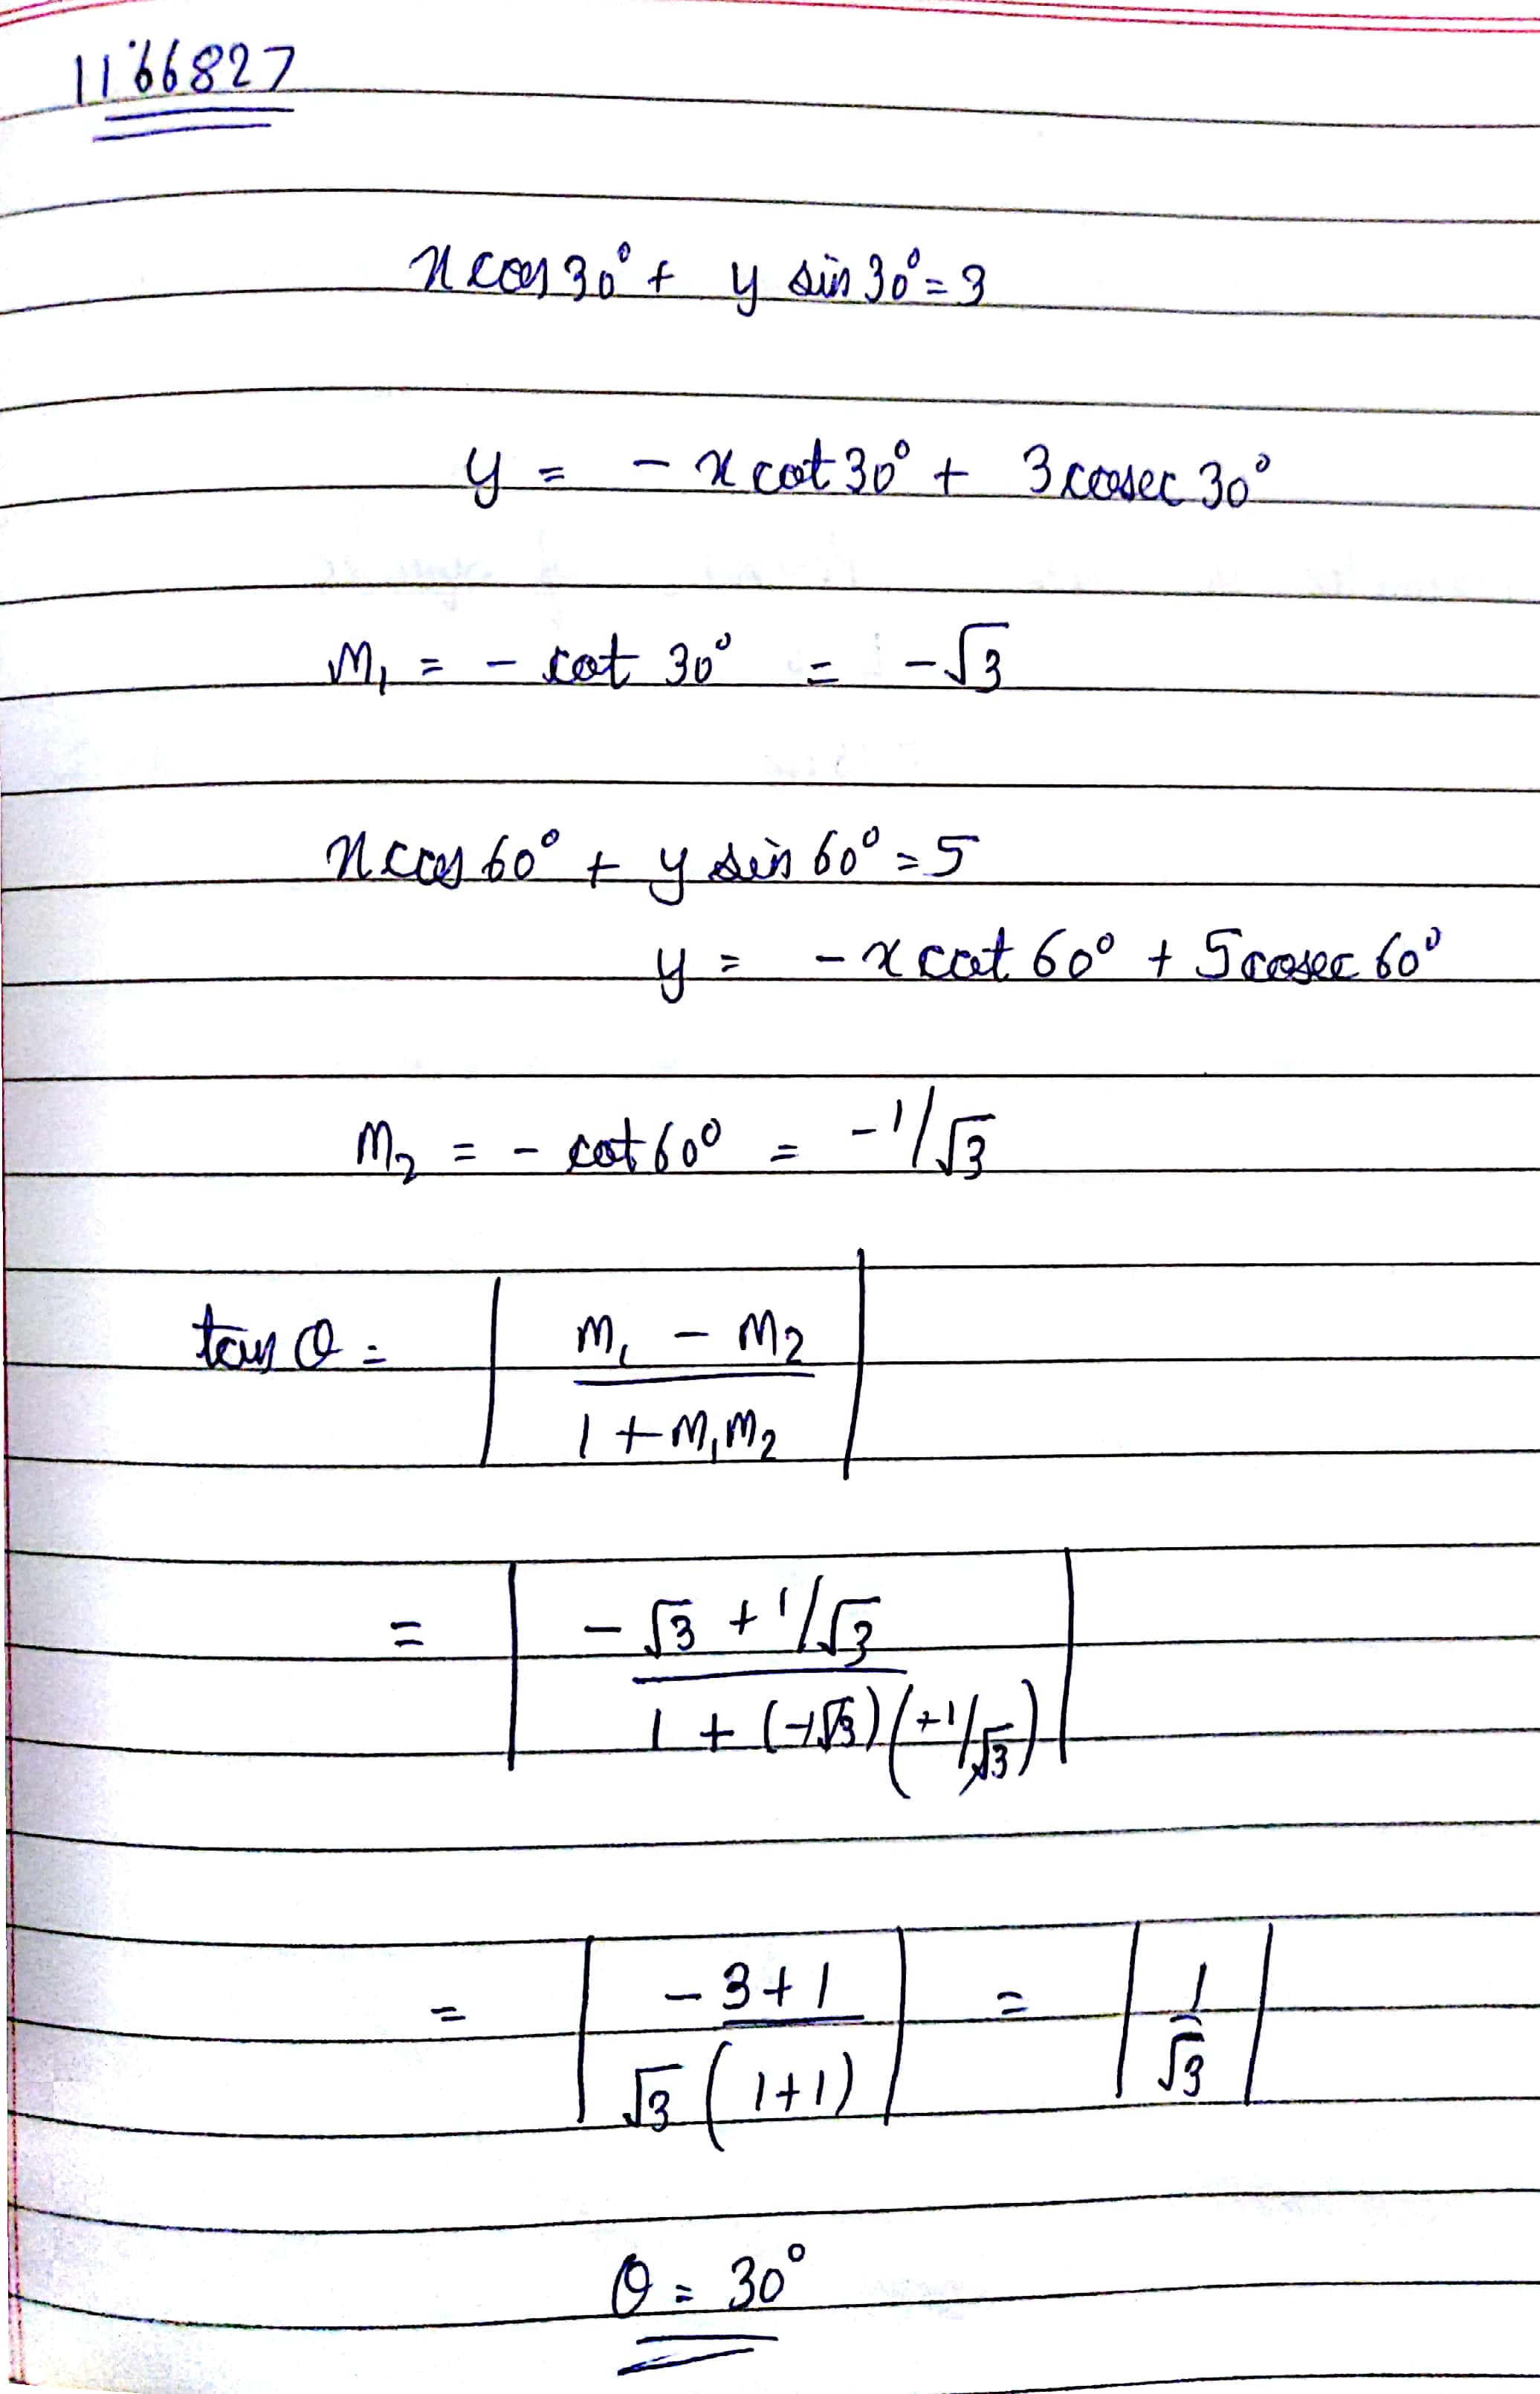 1166827
x cos 30° + y sin 30° = 3
y = - x cot 30° + 3 cosec 30°
m₁ = - cot 30° = -√3
x cos 60° + y sin 60° = 5
y = - x cot 60° + 5 cosec 60°
m₂ = - cot 60° = -1/√3
tan θ = | (m₁ - m₂) / (1 + m₁m₂) |
= | (-√3 + 1/√3) / (1 + (-√3)(+1/√3)) |
= | (-3+1) / (√3 (1+1)) | = | 1/√3 |
θ = 30°